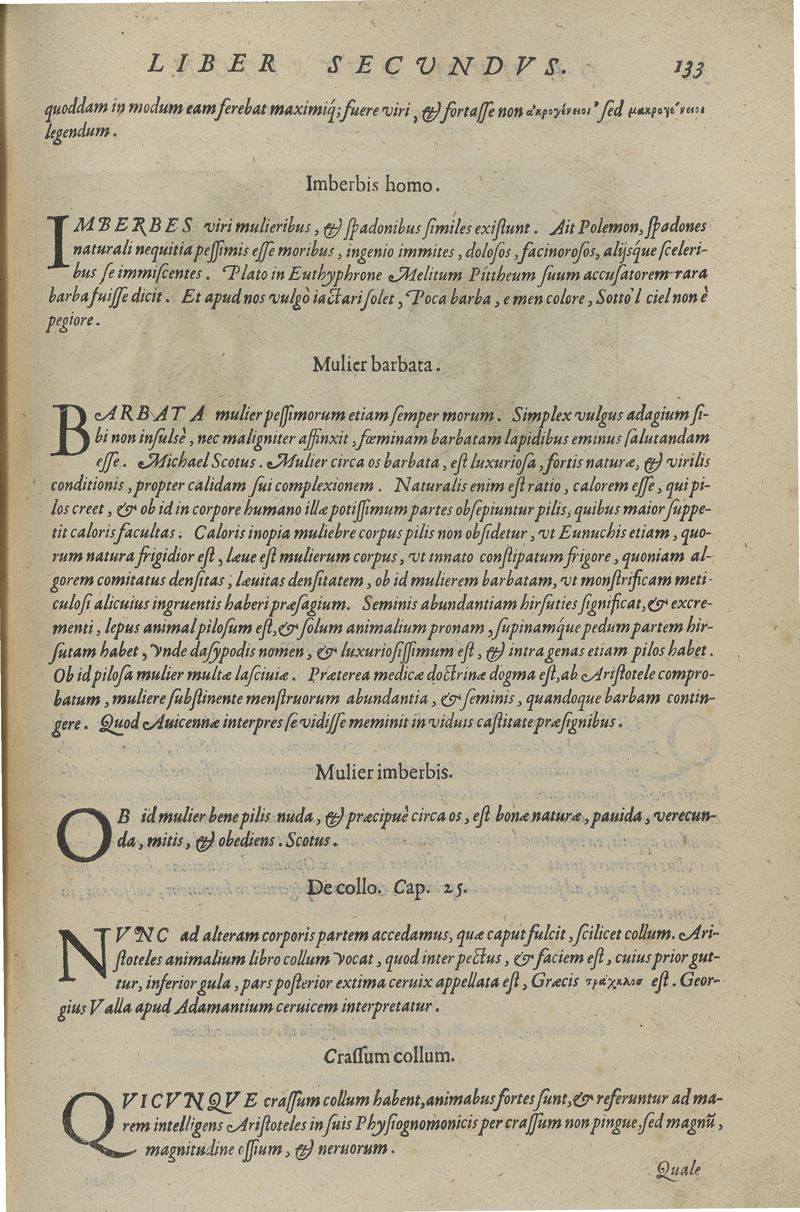 LIBER SECVNDVS. 133
quoddam in modum eam ferebat maximiq́; fuere viri, & fortasse non ἀκρογένειοι sed μακρογένειοι
legendum.
Imberbis homo.
IMBERBES viri mulieribus, & spadonibus similes existunt. Ait Polemon, spadones
naturali nequitia pessimis esse moribus, ingenio immites, dolosos, facinorosos, alijsq́ue sceleri-
bus se immiscentes. Plato in Euthyphrone Melitum Pittheum suum accusatorem rara
barba fuisse dicit. Et apud nos vulgò iactari solet, Poca barba, e men colore, Sotto'l ciel non è
pegiore.
Mulier barbata.
BARBATA mulier pessimorum etiam semper morum. Simplex vulgus adagium si-
bi non insulsè, nec maligniter affinxit, fœminam barbatam lapidibus eminus salutandam
esse. Michael Scotus. Mulier circa os barbata, est luxuriosa, fortis naturæ, & virilis
conditionis, propter calidam sui complexionem. Naturalis enim est ratio, calorem esse, qui pi-
los creet, & ob id in corpore humano illæ potissimum partes obsepiuntur pilis, quibus maior suppe-
tit caloris facultas. Caloris inopia muliebre corpus pilis non obsidetur, vt Eunuchis etiam, quo-
rum natura frigidior est, læue est mulierum corpus, vt innato constipatum frigore, quoniam al-
gorem comitatus densitas, læuitas densitatem, ob id mulierem barbatam, vt monstrificam meti-
culosi alicuius ingruentis haberi præsagium. Seminis abundantiam hirsuties significat, & excre-
menti, lepus animal pilosum est, & solum animalium pronam, supinamq́ue pedum partem hir-
sutam habet, vnde dasypodis nomen, & luxuriosissimum est, & intra genas etiam pilos habet.
Ob id pilosa mulier multæ lasciuiæ. Præterea medicæ doctrinæ dogma est, ab Aristotele compro-
batum, muliere substinente menstruorum abundantia, & seminis, quandoque barbam contin-
gere. Quod Auicennæ interpres se vidisse meminit in viduis castitate præsignibus.
Mulier imberbis.
OB id mulier bene pilis nuda, & præcipuè circa os, est bonæ naturæ, pauida, verecun-
da, mitis, & obediens. Scotus.
De collo. Cap. 25.
NVNC ad alteram corporis partem accedamus, quæ caput fulcit, scilicet collum. Ari-
stoteles animalium libro collum vocat, quod inter pectus, & faciem est, cuius prior gut-
tur, inferior gula, pars posterior extima ceruix appellata est, Græcis τράχηλοσ est. Geor-
gius Valla apud Adamantium ceruicem interpretatur.
Crassum collum.
QVICVNQVE crassum collum habent, animabus fortes sunt, & referuntur ad ma-
rem intelligens Aristoteles in suis Physiognomonicis per crassum non pingue, sed magnũ,
magnitudine ossium, & neruorum.
Quale